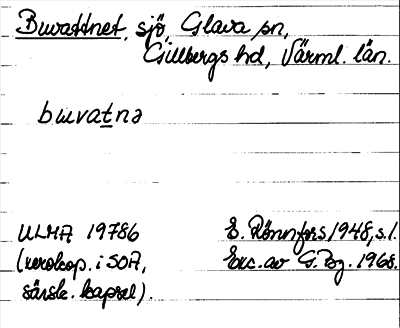 Buvattnet, sjö, Glava sn,
Gillbergs hd, Värml. län.
buvatnə
ULMA 19786
E. Rönnfors 1948, s. 1.
(xerokop. i SOA,
Exc. av G. Bg. 1968.
särsk. kapsel).